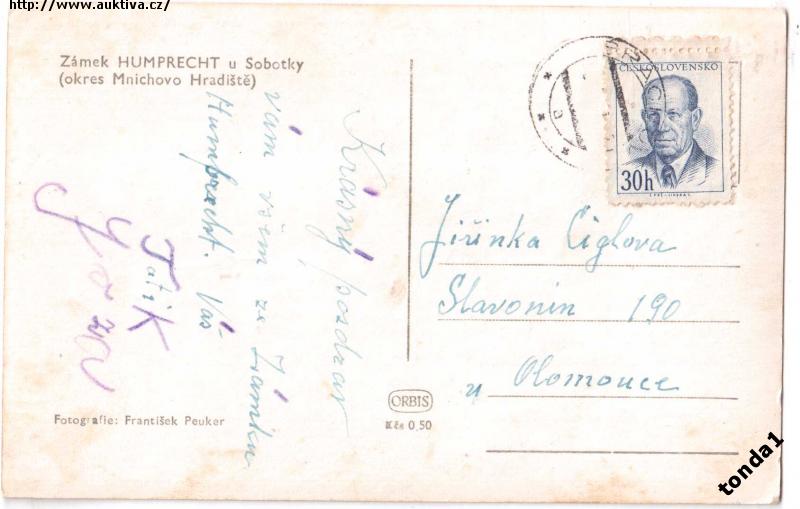 http://www.auktiva.cz/
Zámek HUMPRECHT u Sobotky
(okres Mnichovo Hradiště)
Krásný pozdrav
vám všem ze Zámku
Humprecht. Váš
Tatík
Fotografie: František Peuker
ORBIS
Kčs 0,50
ČESKOSLOVENSKO
30h
Jiřinka Ciglova
Slavonín 190
u Olomouce
tonda1